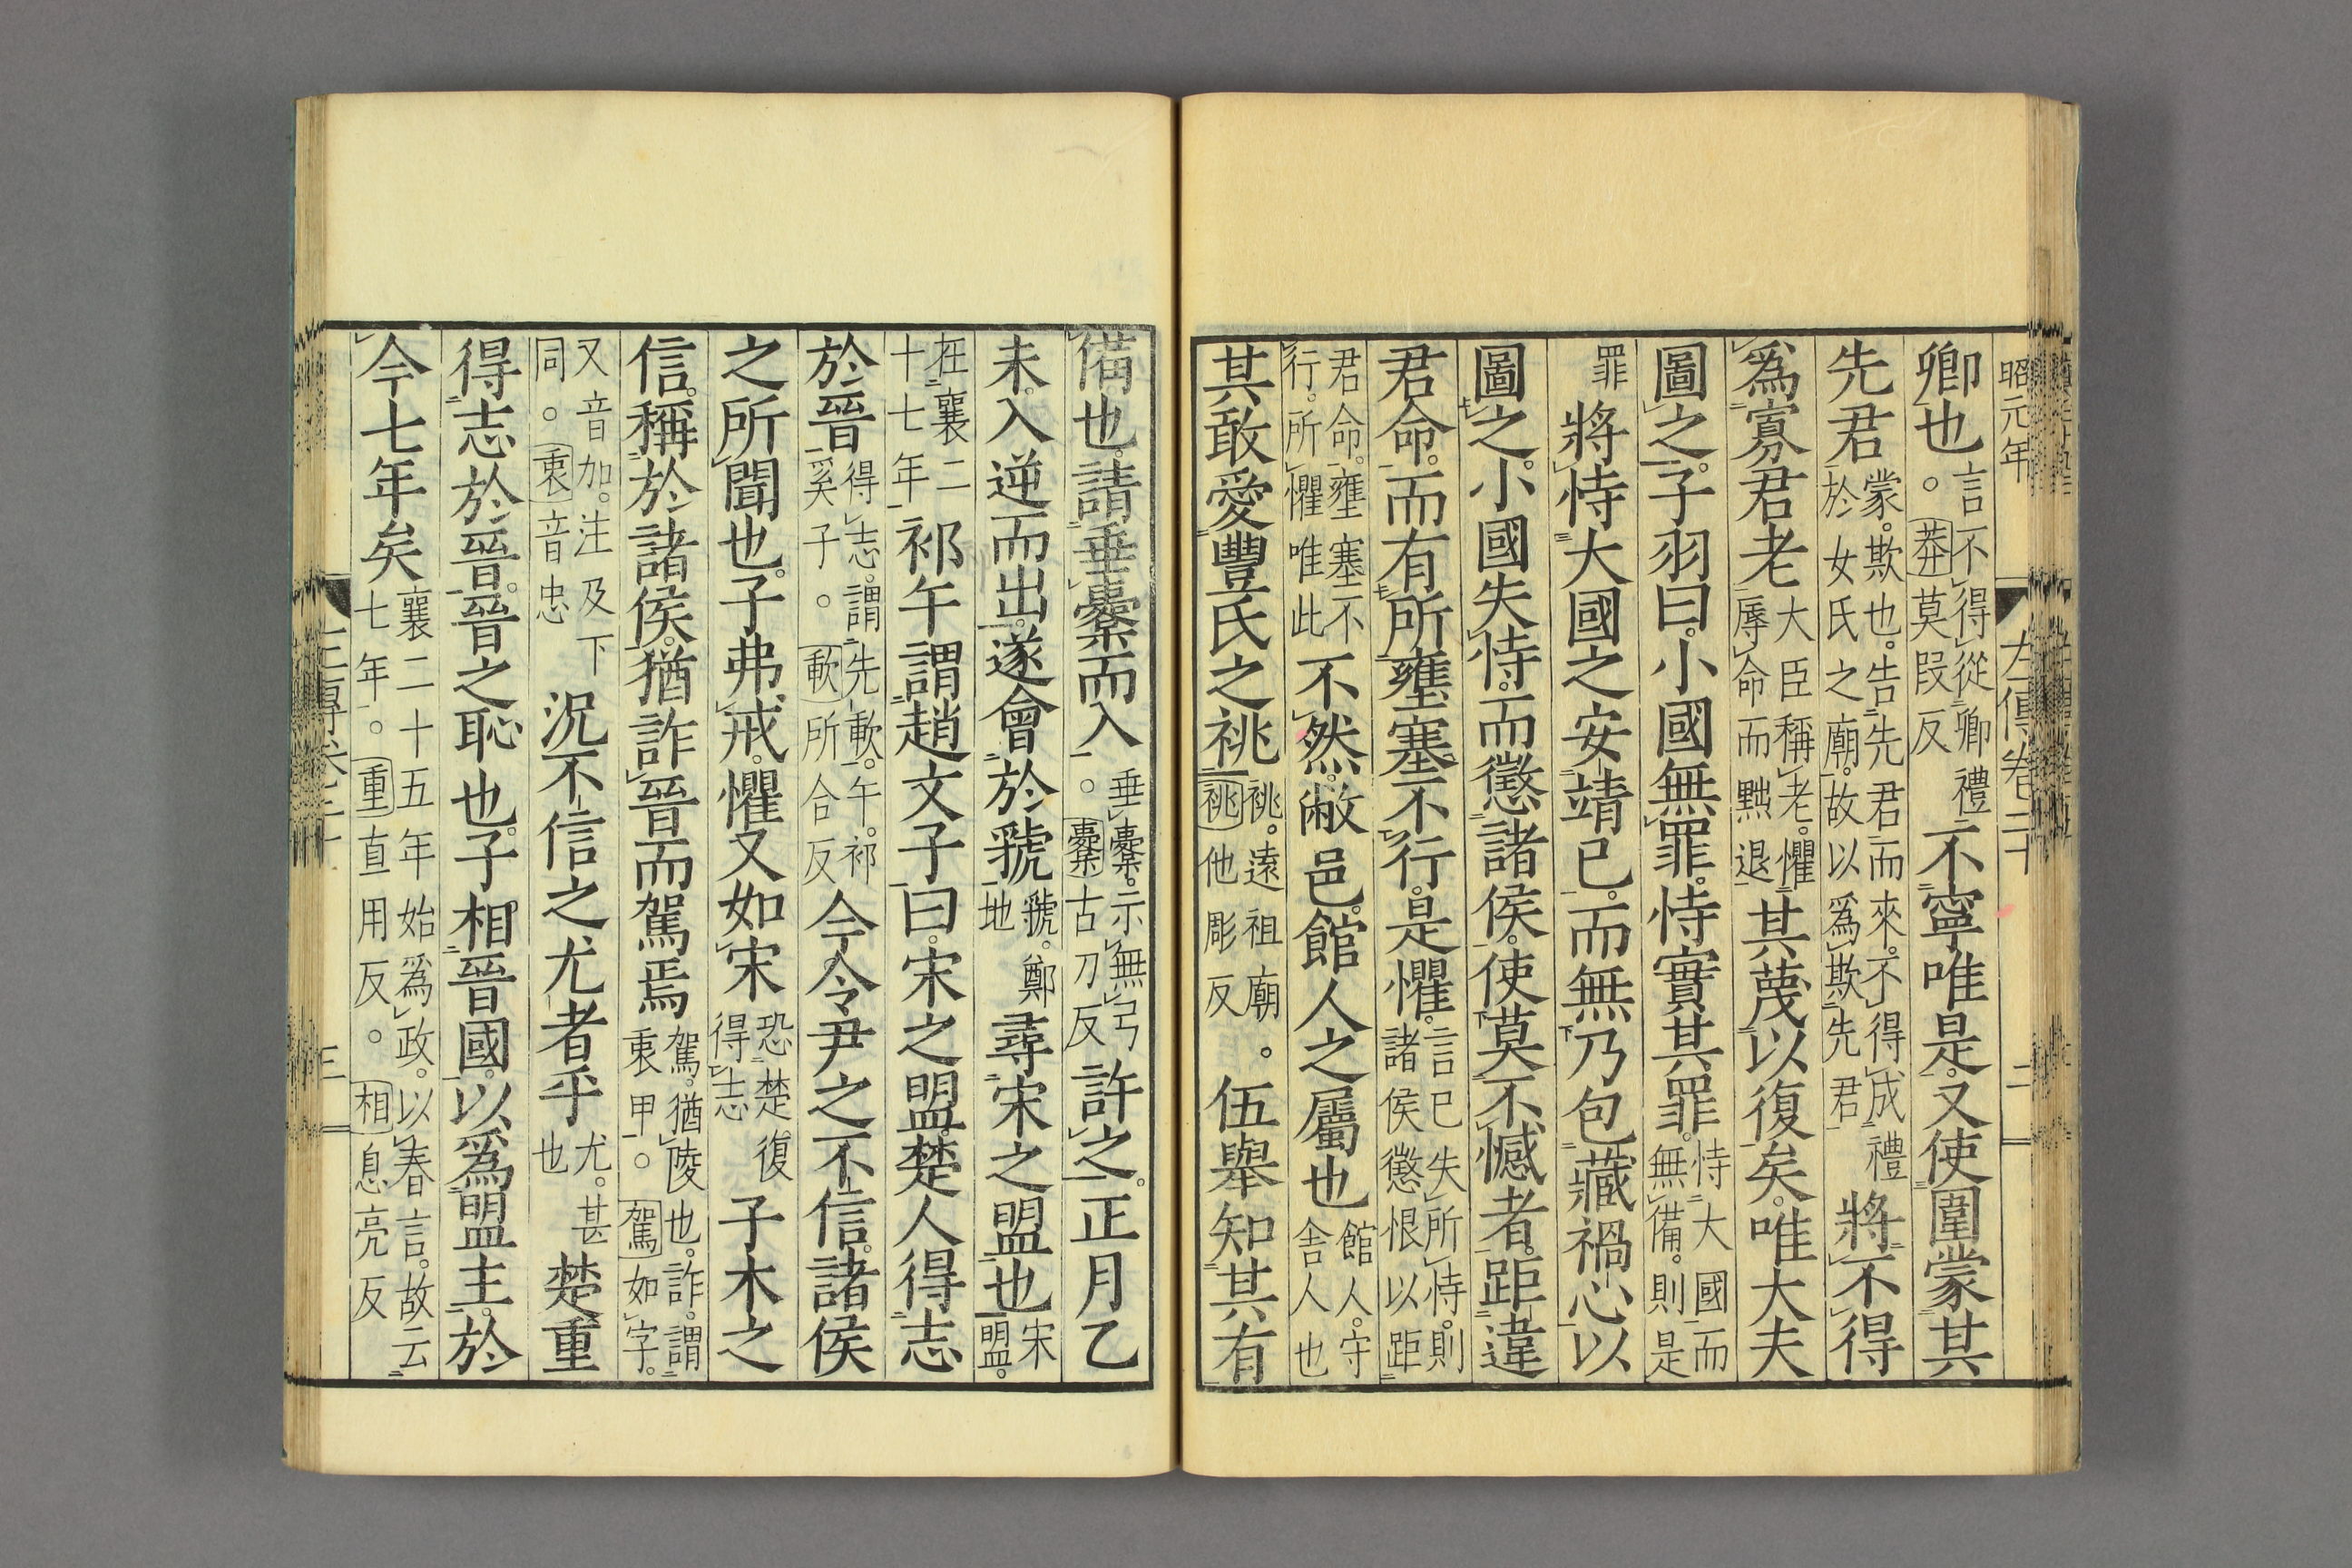 昭元年 左傳卷二十 二
卿也言不得從卿禮。莽莫叚反不寧唯是。又使圍蒙其
先君蒙。欺也。告先君而來。不得成禮於女氏之廟。故以爲欺先君將不得
爲寡君老大臣稱老。懼辱命而黜退其蔑以復矣。唯大夫
圖之。子羽曰。小國無罪。恃實其罪。恃大國而無備。則是
罪將恃大國之安靖已。而無乃包藏禍心以
圖之。小國失恃。而懲諸侯。使莫不憾者。距違
君命。而有所壅塞不行。是懼。言已失所恃。則諸侯懲恨以距
君命。壅塞不行。所懼唯此不然。敝邑。館人之屬也館人。守舍人也
其敢愛豐氏之祧祧。遠祖廟。祧他彫反伍舉知其有
備也。請垂櫜而入垂櫜。示無弓。櫜古刀反許之。正月乙
未。入逆而出。遂會於虢虢。鄭地尋宋之盟也宋盟。
在襄二十七年祁午謂趙文子曰。宋之盟。楚人得志
於晉得志。謂先歃。午。祁奚子。歃所合反今令尹之不信。諸侯
之所聞也。子弗戒。懼又如宋恐楚復得志子木之
信。稱於諸侯。猶詐晉而駕焉駕。猶陵也。詐。謂衷甲。駕如字。
又音加。注及下同。衷音忠況不信之尤者乎尤。甚也楚重
得志於晉。晉之恥也。子相晉國。以爲盟主。於
今七年矣襄二十五年始爲政。以春言。故云七年。重直用反。相息亮反
三